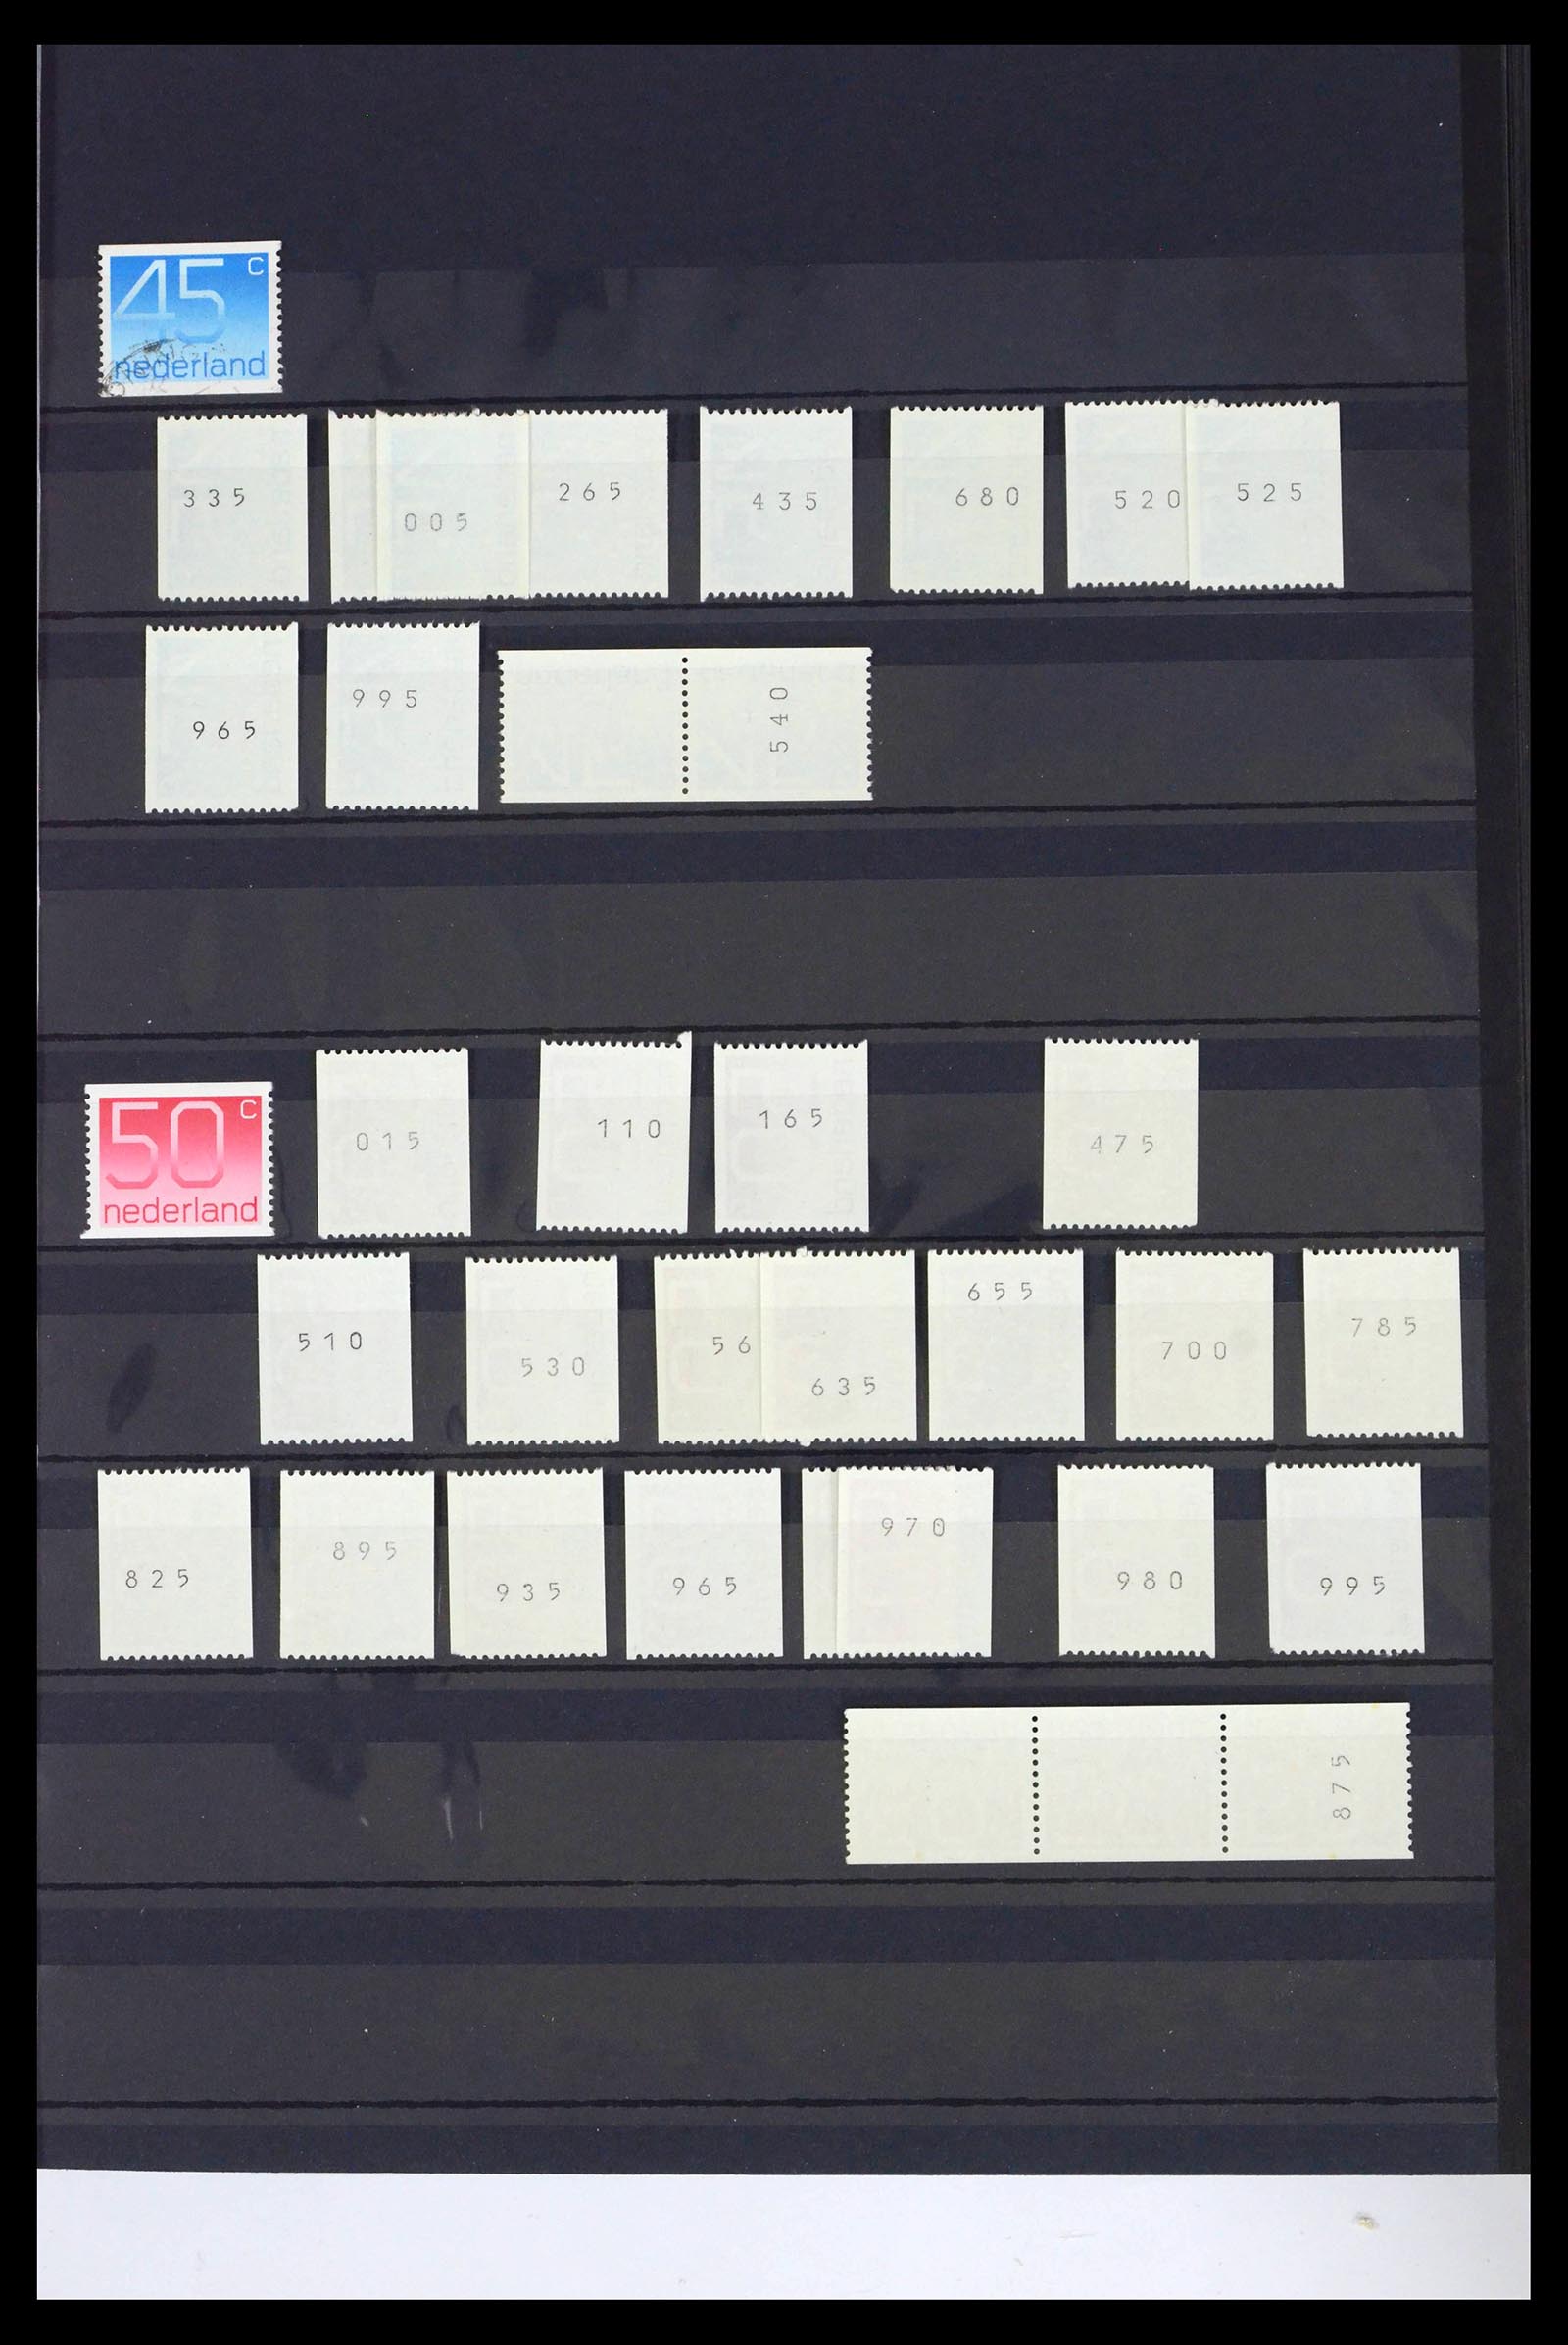 45 c
nederland
335 005 265 435 680 520 525
965 995 540
50 c
nederland
015 110 165 475
510 530 56 635 655 700 785
825 895 935 965 970 980 995
875